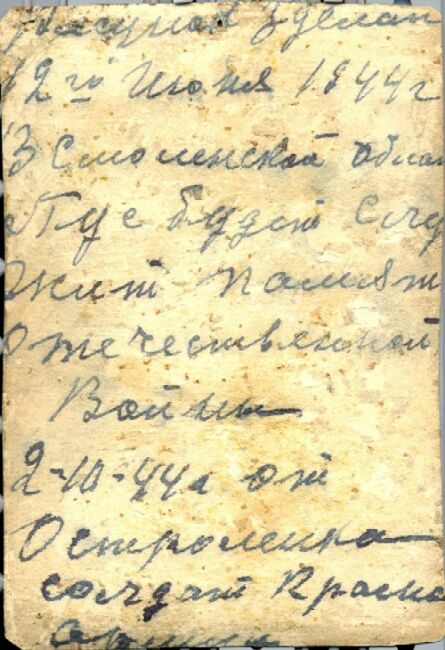 Рисунок зделан
12го Июня 1944г
В Смоленской облас
Пус будет служ
жит памят
Отечественной
Войны
2-10-44г от
Остроленка
солдат Красно
Армии